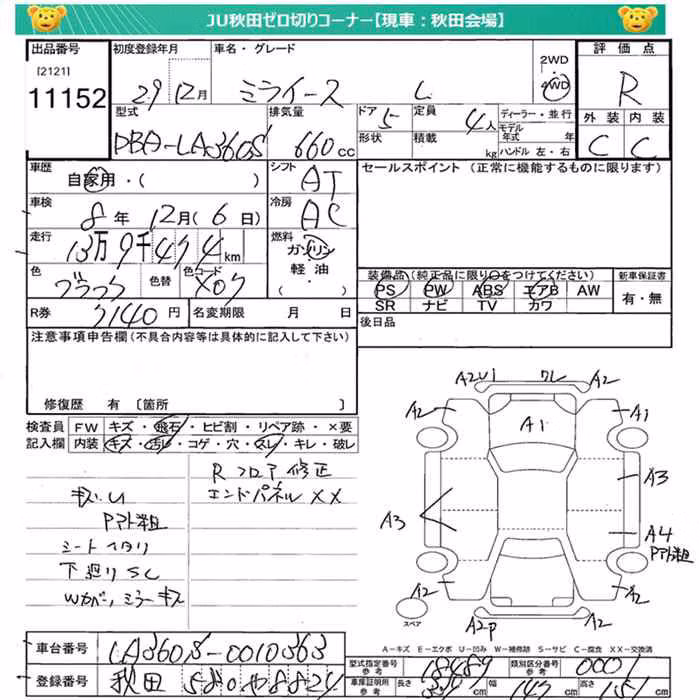 JU秋田ゼロ切りコーナー【現車：秋田会場】
出品番号 初度登録年月 車名・グレード 2WD 評価点
[2121] 29 12月 ミライース L 4WD R
11152
型式 排気量 ドア 定員 ディーラー・並行 外装 内装
DBA-LA360S 660cc 5 4人 モデル年式 年 C C
形状 積載 kg ハンドル 左・右
車歴 シフト セールスポイント（正常に機能するものに限ります）
自家用・（ ） AT
車検 冷房
8年 12月（6日） AC
走行 燃料
13万9千474km ガソリン
軽油
・（ ）
色 色替 色コード 装備品（純正品に限り○をつけてください） 新車保証書
X07 PS PW ABS エアB AW 有・無
SR ナビ TV カワ
R券 7140円 名変期限 月 日 後日品
注意事項申告欄（不具合内容等は具体的に記入して下さい）
修復歴 有 〔箇所 〕
検査員 FW キズ・飛石・ヒビ割・リペア跡・×要
記入欄 内装 キズ・汚レ・コゲ・穴・スレ・キレ・破レ
R フロア 修正
エンドパネル XX
シートヘタリ
下廻りSC
A2U1 ワレ A2
A2 A1 A1
A3 A3
A4
A2 A2
A2P A2
スペア
A－キズ E－エクボ U－凹み W－補修跡 S－サビ C－腐食 XX－交換済
車台番号 LA360S-0010363
登録番号 秋田 580 や 8824
型式指定番号 参考 18489 類別区分番号 参考 0001
車庫証明用 参考 長さ 339cm 幅 147cm 高さ 151cm